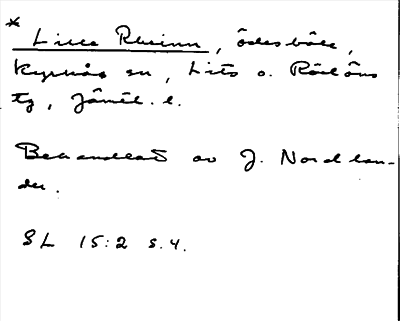 * Lille Rhinn, ödesböle,
Kyrkås sn, Lits o. Rödöns
tg, Jämtl. l.
Behandlat av J. Nordlan-
der.
SL 15:2 s.4.